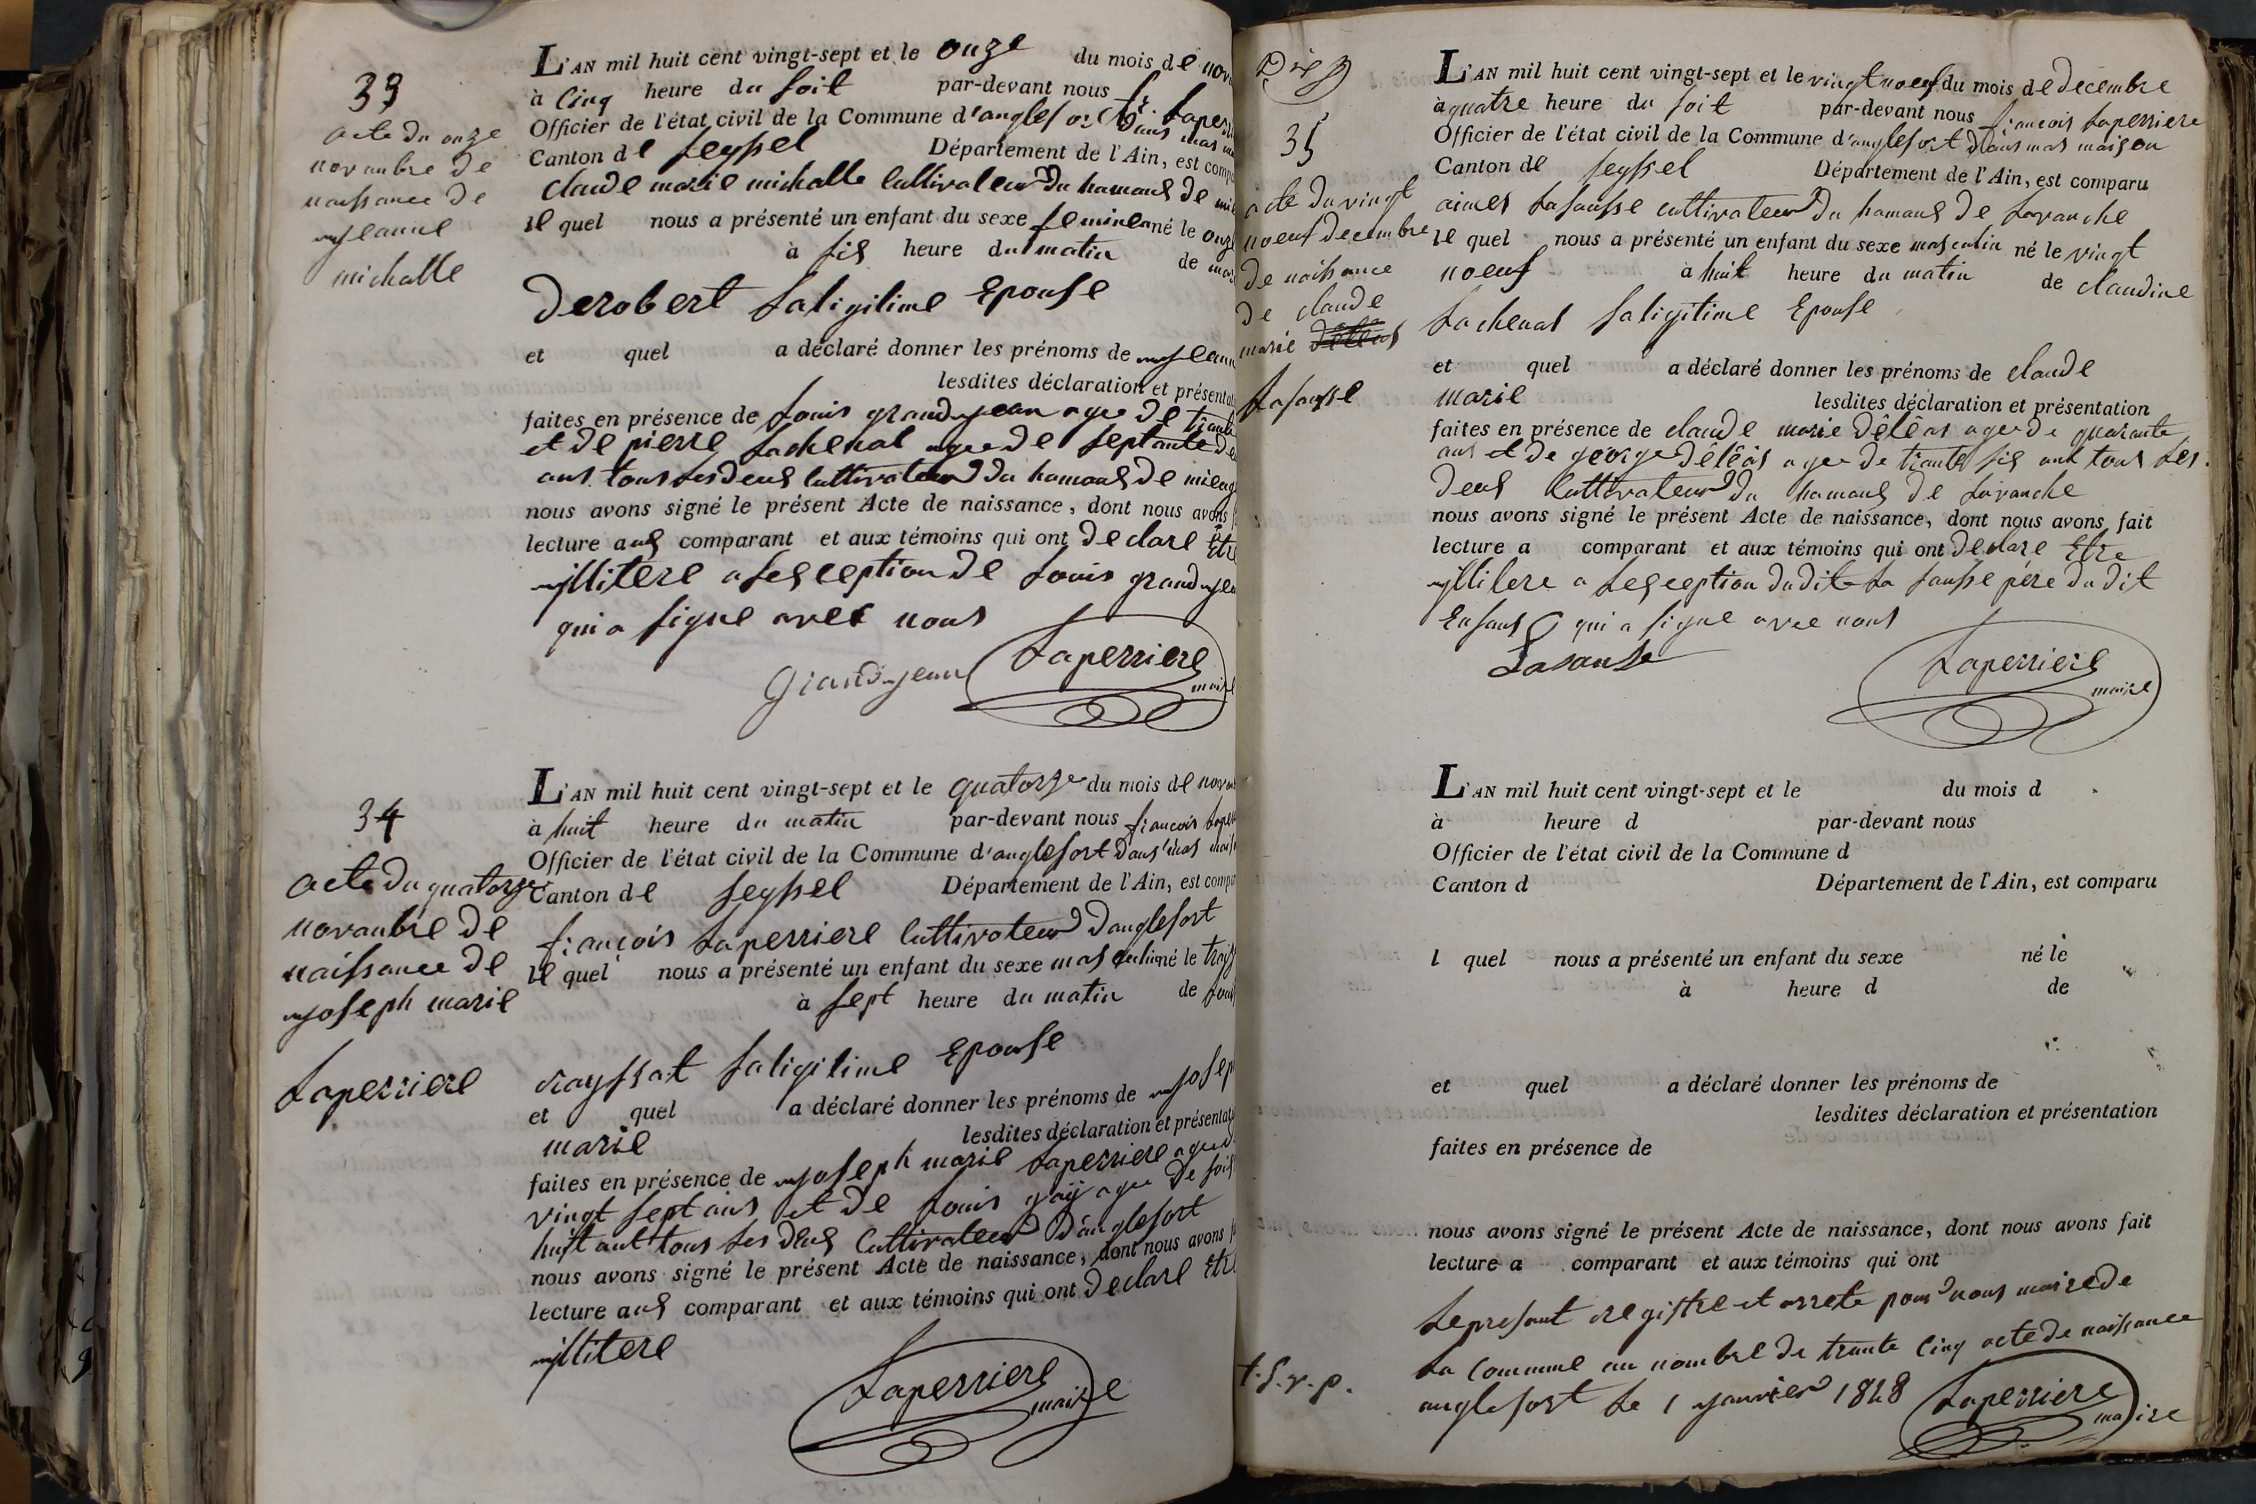 33
acte du onze
novanbre de
naissance de
jeanne
michalle
L'AN mil huit cent vingt-sept et le onze du mois de nov
à cinq heure du soit par-devant nous fr. laperri
Officier de l'état civil de la Commune d'anglefort dans mas
Canton de seyssel Département de l'Ain, est comp
claude marie michalle cultivateur du hamaux de
le quel nous a présenté un enfant du sexe feminen né le onz
à six heure du matin de
derobert saligitime Epouse
et quel a déclaré donner les prénoms de jeann
lesdites déclaration et présentat
faites en présence de Louis grand jean agee de trante
et de pierre Lachenal agee de septante de
ans tous les deux cultivateur du hamaux de mieug
nous avons signé le présent Acte de naissance, dont nous avons f
lecture aux comparant et aux témoins qui ont declare Etre
illitere a lesception de Louis grand jea
qui a signe avec nous
grand jean Laperriere
maire
34
acte du quatorze
novanbre de
naissance de
joseph marie
Laperriere
L'AN mil huit cent vingt-sept et le quatorze du mois de novan
à huit heure du matin par-devant nous françois laper
Officier de l'état civil de la Commune d'anglefort dans mas mais
Canton de seyssel Département de l'Ain, est compa
françois Laperriere cultivateur d'anglefort
le quel nous a présenté un enfant du sexe masculin né le treiz
à sept heure du matin de Loui
rayssat saligitime Epouse
et quel a déclaré donner les prénoms de josep
marie lesdites déclaration et présentat
faites en présence de joseph marie Laperriere agee d
vingt sept ans et de Louis gaÿ agee de sois
huit ant tous les deux cultivateur d'anglefort
nous avons signé le présent Acte de naissance, dont nous avons f
lecture aux comparant et aux témoins qui ont declare Etre
illitere
Laperriere
maire
35
acte du vingt
noeuf decembre
de naissance
de claude
marie
Lasausse
L'AN mil huit cent vingt-sept et le vingt noeuf du mois de decembre
à quatre heure du soit par-devant nous françois Laperriere
Officier de l'état civil de la Commune d'anglefort dans mas maison
Canton de seyssel Département de l'Ain, est comparu
aimes Lasausse cultivateur du hamaux de Lavanche
le quel nous a présenté un enfant du sexe masculin né le vingt
noeuf à huit heure du matin de claudine
Lachenal saligitime Epouse
et quel a déclaré donner les prénoms de claude
marie lesdites déclaration et présentation
faites en présence de claude marie déléas agee de quarante
ans et de george déléas agee de trante six ant tous les
deux cultivateur du hamaux de Lavanche
nous avons signé le présent Acte de naissance, dont nous avons fait
lecture a comparant et aux témoins qui ont declare Etre
illitere a lesception dudit La sausse père dudit
Enfans qui a signe avec nous
Lasausse Laperriere
maire
L'AN mil huit cent vingt-sept et le du mois d
à heure d par-devant nous
Officier de l'état civil de la Commune d
Canton d Département de l'Ain, est comparu
l quel nous a présenté un enfant du sexe né le
à heure d de
et quel a déclaré donner les prénoms de
lesdites déclaration et présentation
faites en présence de
nous avons signé le présent Acte de naissance, dont nous avons fait
lecture a comparant et aux témoins qui ont
Le present registre et arrete pour nous maire de
La commune au nombre de trante cinq acte de naissance
t.s.v.p. anglefort le 1 janvier 1828 Laperriere
maire